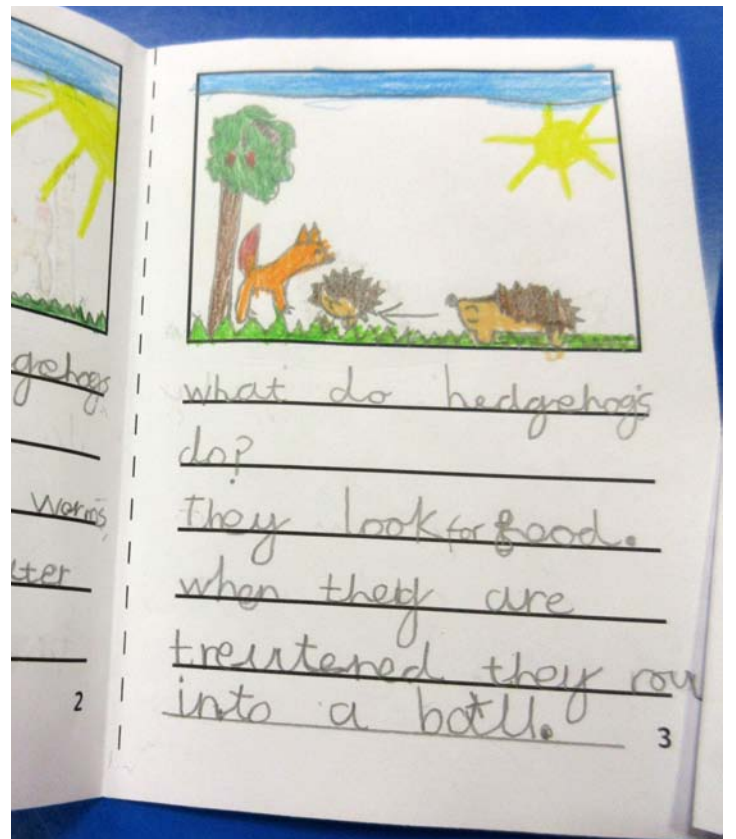 gehogs
worms,
ter
2
what do hedgehogs
do?
they look for food.
when they are
treatened they rou
into a ball.
3